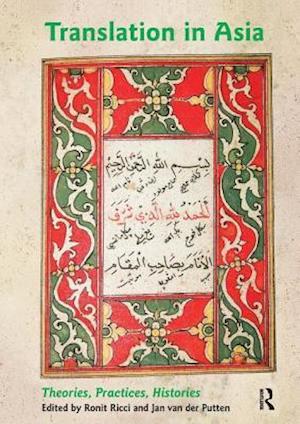 Translation in Asia
بسم الله الرحمن الرحيم
الحمد لله الذي شرف
الانام بصاحب المقام
Theories, Practices, Histories
Edited by Ronit Ricci and Jan van der Putten